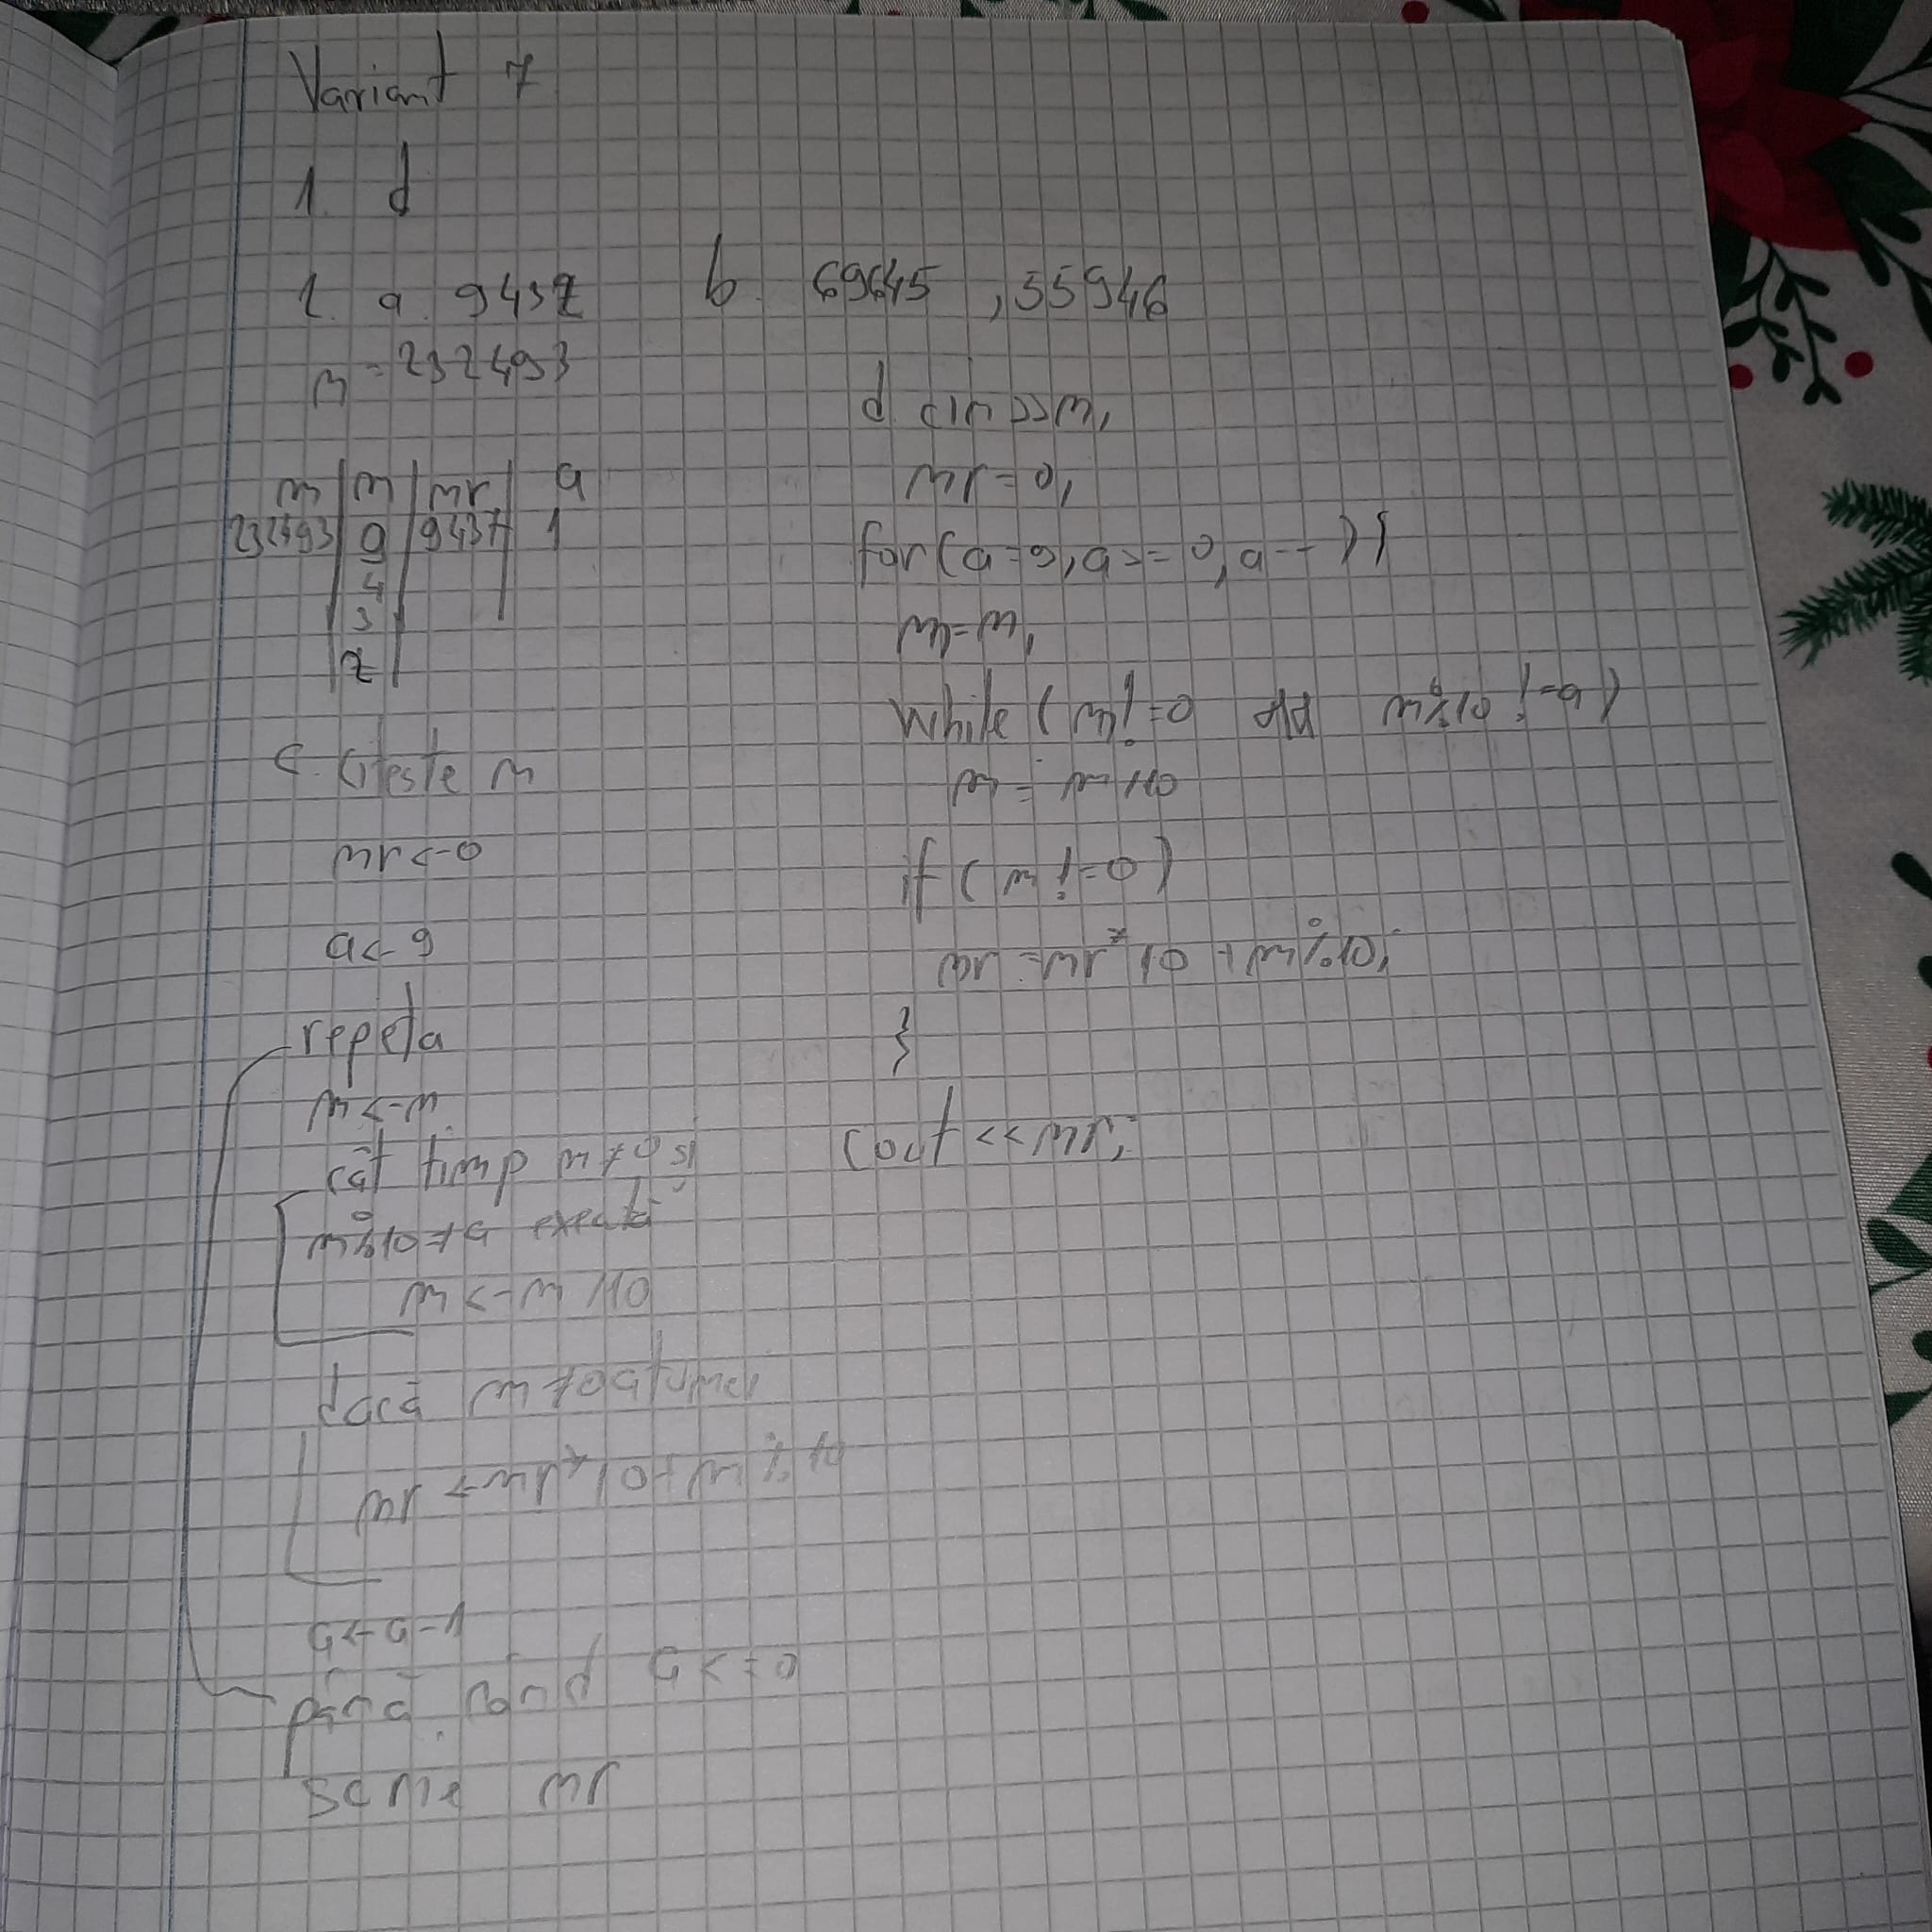 Variant 7
1. d
2. a. 9432
n = 232493
n | m | nr | a
232493 | 9 | 9432 | 1
4
3
2
c. citeste n
nr <- 0
a <- 9
repeta
m <- n
cât timp m ≠ 0 si
m%10 ≠ a executa
m <- m/10
dacă m ≠ 0 atunci
nr <- nr*10 + m%10
a <- a-1
până când a <= 0
scrie nr
b. 69645, 55946
d. cin >> n;
nr = 0;
for(a=9; a<=0; a--){
m = n;
while (m != 0 && m%10 != a)
m = m/10
if (m != 0)
nr = nr*10 + m%10;
}
cout << nr;